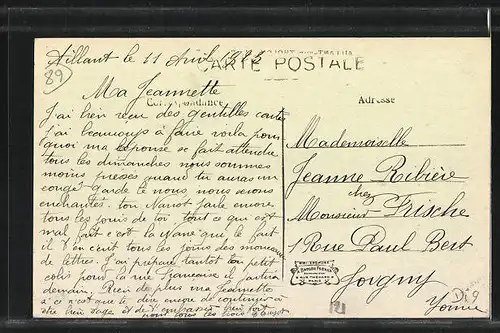 Aillant le 11 Avril
89
CARTE POSTALE
Ma Jeannette
Correspondance
Adresse
J'ai bien reçu des gentilles cartes
j'ai beaucoup à faire voila pour
quoi ma réponse se fait attendre
tous les dimanches nous sommes
moins pressés quand tu auras un
congé garde le nous, nous serons
enchantés. ton Nanot parle encore
tous les jours de toi, tout ce qui est
mal fait c'est la Nane que le fait
il t'en écrit tous les jours des morceaux
de lettres. J'ai préparé tantot ton petit
colis pour la rue Française il partira
demain. Rien de plus ma Jeannette
si ce n'est que te dire encore de continuer à
être bien sage et de t'embrasser bien fort
pour nous tous
Mademoiselle
Jeanne Ribière
chez
Monsieur Frische
1 Rue Paul Bert
Joigny
Yonne
PARIS